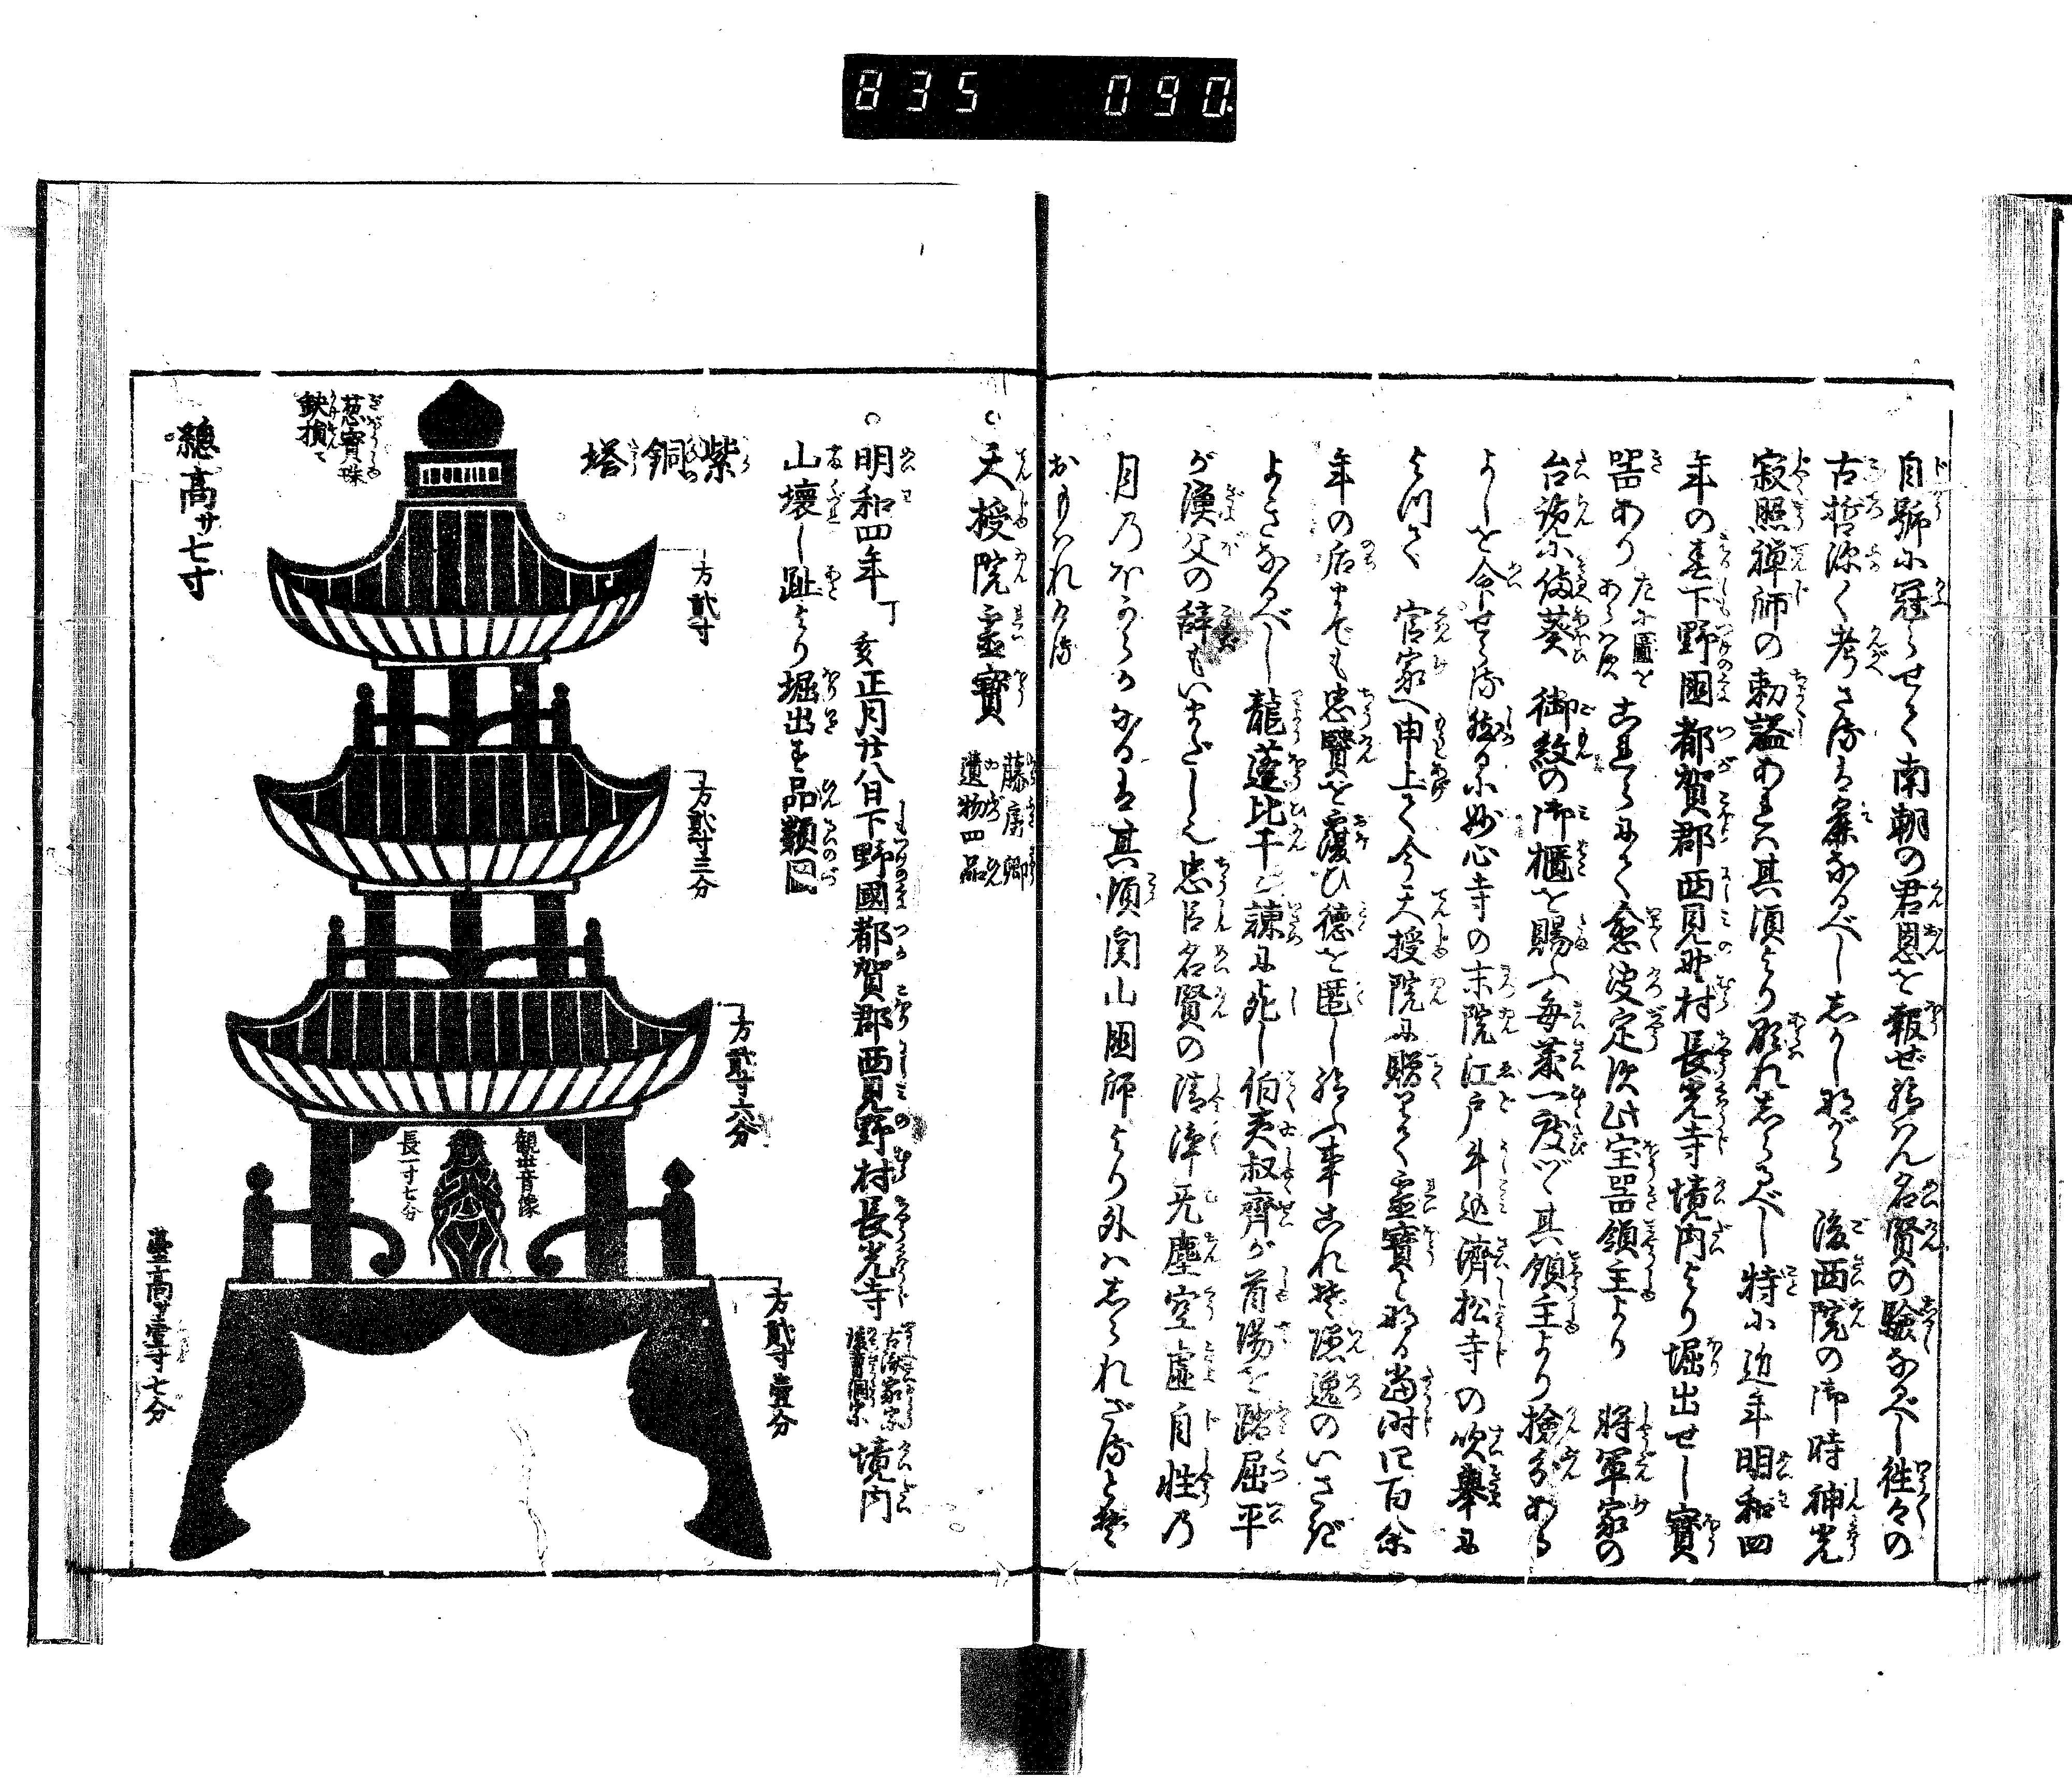 835 090
自號に冠らせて南朝の君恩を報ぜ給はん名賢の驗なるべし往々の
古哲深く考ざる は麁なるべし志かし ながら 後西院の御時神光
寂照禅師の勅謚あれは其頃より顕れ志らるべし特に近年明和四
年の春下野國都賀郡西見野村長光寺境内より堀出せし寳
器あり 左に圖を
あらハす
これらにて愈決定次此宝器領主より 将軍家の
台覧に備葵 御紋の御櫃を賜ふ毎歳一度づゝ其領主より撿分ある
よしを命せらる 然るに妙心寺の末院江戸牛込濟松寺の吹舉に
よつて 官家へ申上て今天授院に賜りて靈寳となる當時四百余
年の后までも忠賢を覆ひ徳を匿し給ふ事これ楚隠逸のいさぎ
よきなるべし龍逢比干は諌に死し伯夷叔齊が首陽を踏屈平
が漁父の辞もいまだしく忠臣名賢の清浄无塵空虚自性乃
月乃ほからかなるは其頃関山國師より外ハ志られざると楚
おもハれける
○天授院靈寳 藤房卿
遺物四品
○明和四年丁亥正月廿八日下野國都賀郡西見野村長光寺 境内
山壊し趾より堀出す品類圖
紫銅塔
葱寳珠
鈌損て
總高サ七寸
方貮寸
方貮寸三分
方貮寸六分
觀世音像
長一寸七分
方貮寸壹分
臺高サ壹寸七分